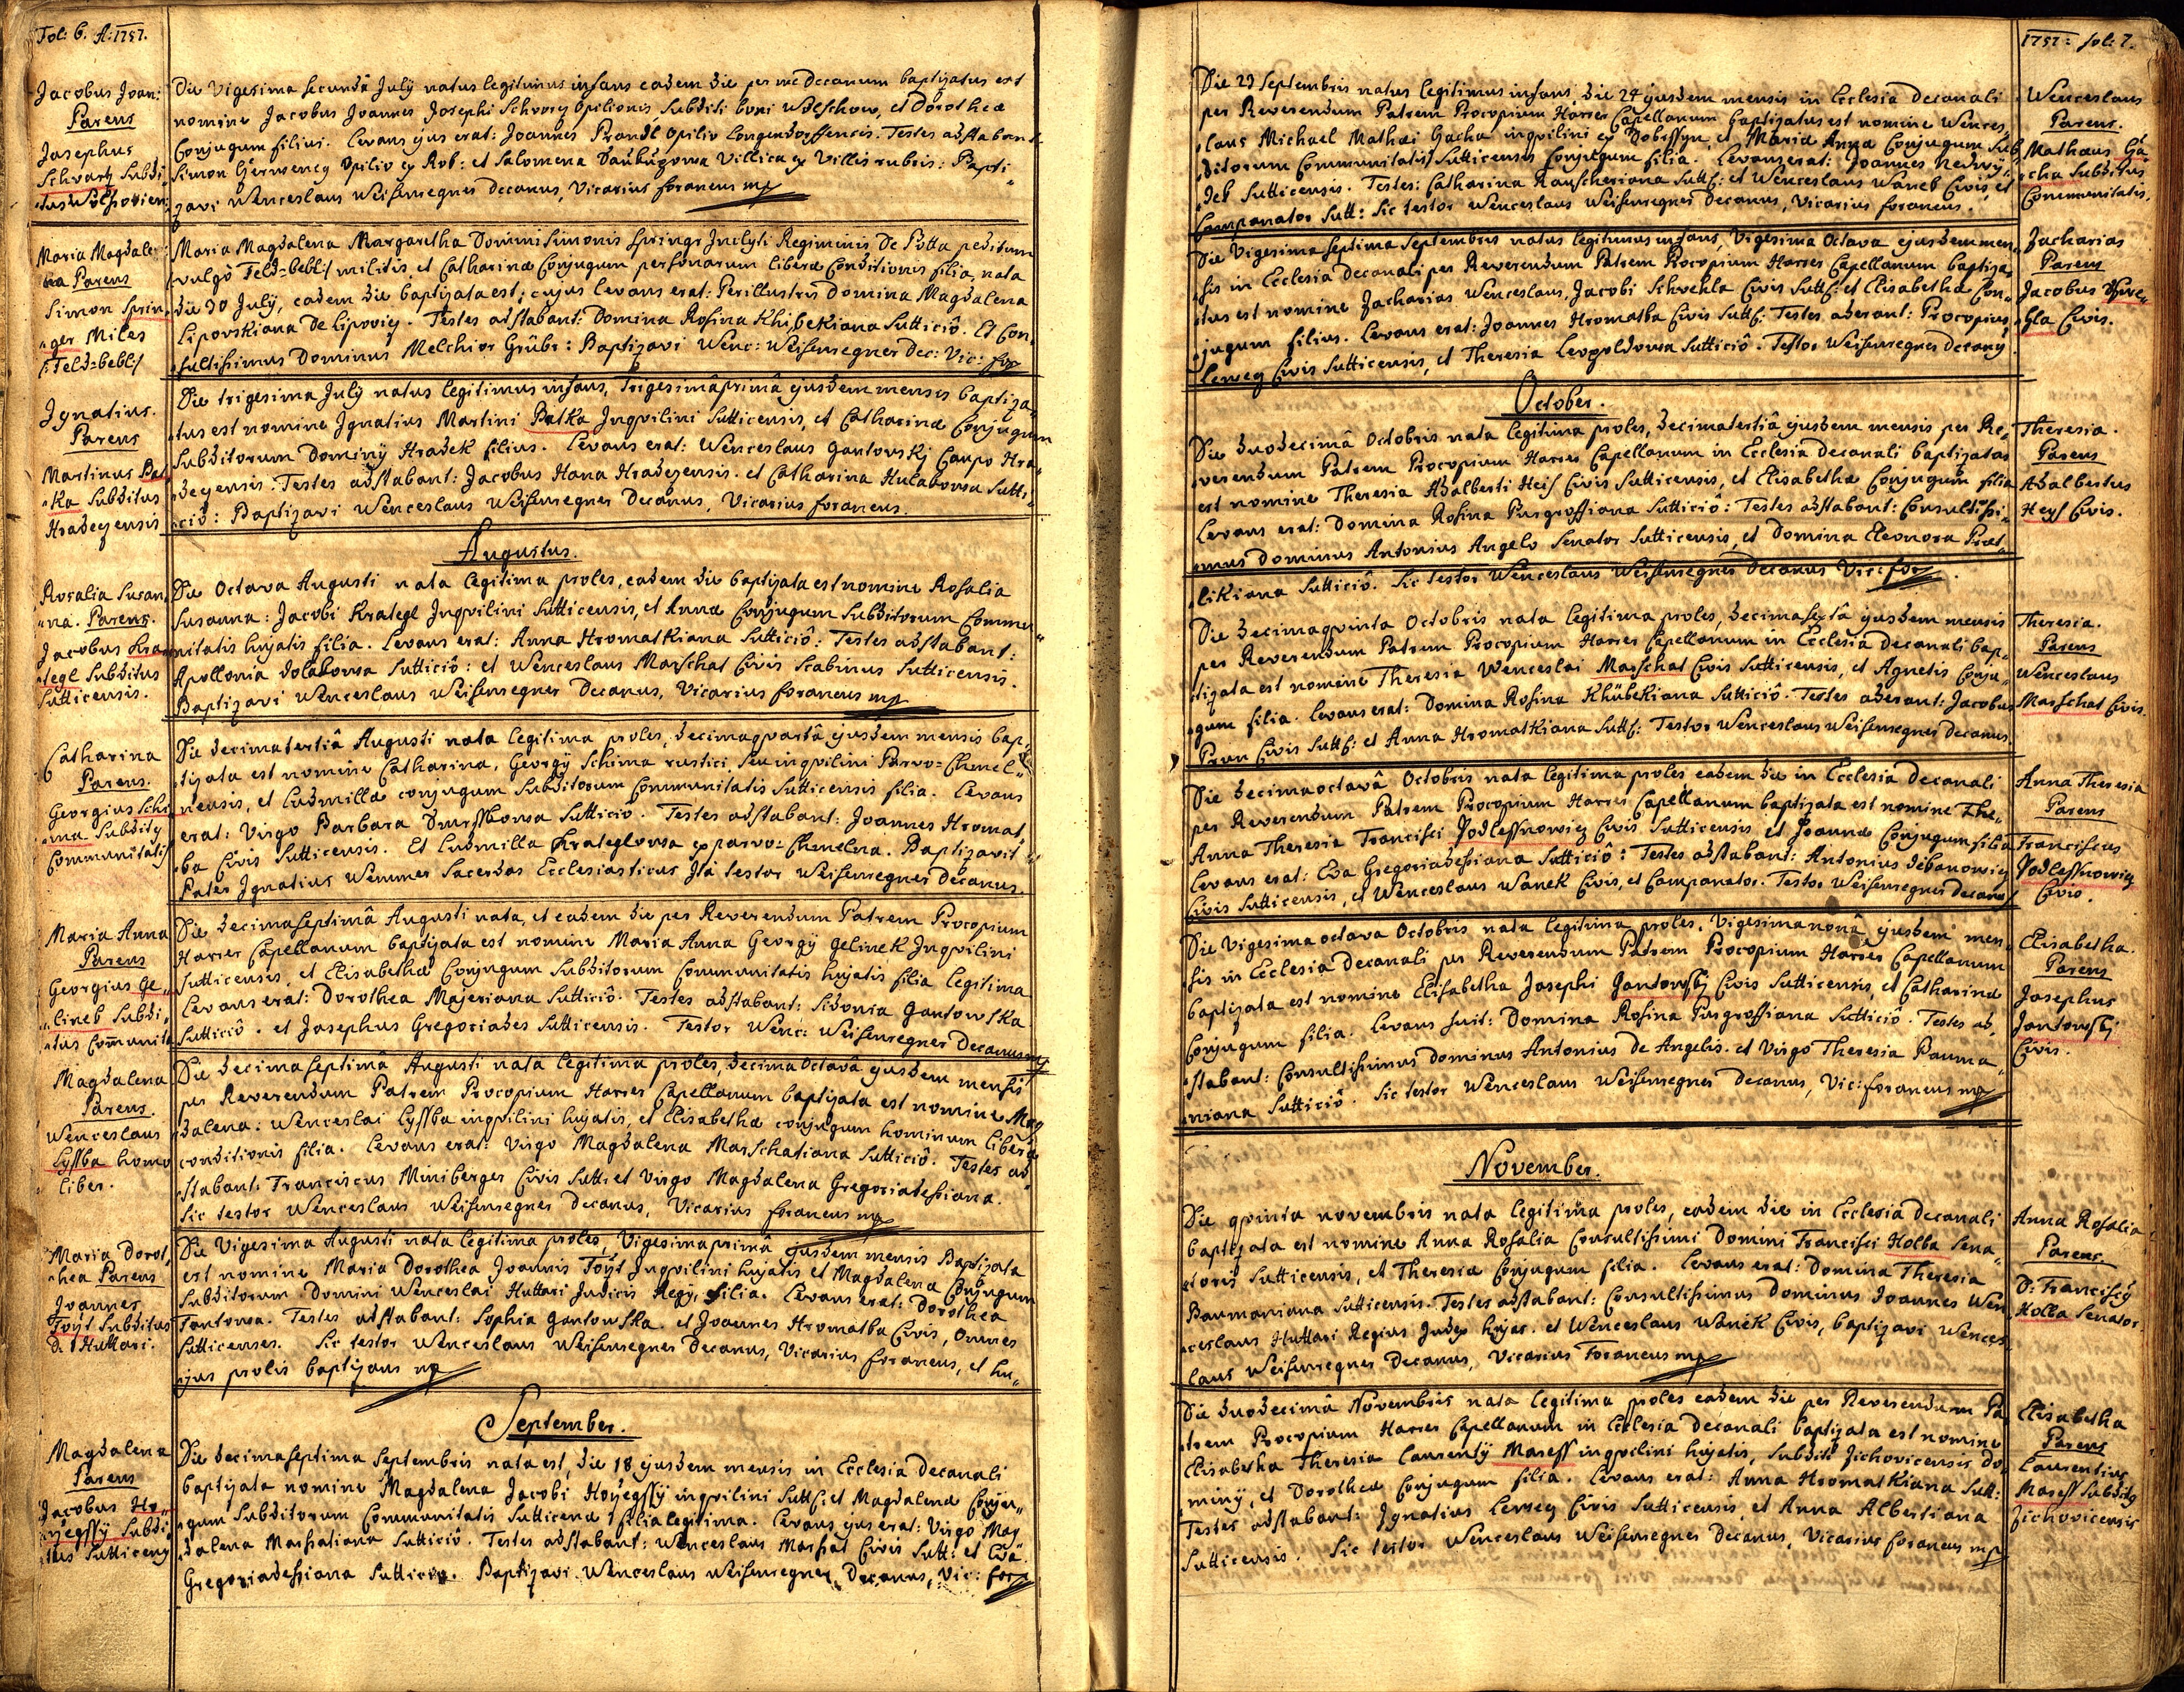 Fol: 6. A: 1757.
Jacobus Joan:
Parens
Josephus
Schvarz Subdi„
Die Vigesima secunda July natus legitimus infans eadem die per me Decanum baptizatus est
nomine Jacobus Joannes Josephi Schvarz Opilionis, Subditi boni et Dorothea
Conjugum filius. Levans ejus erat: Joannes Prandl Opilio Testes adstabant
Simon Opilio ex Rob: et Salomena Villica ex Villis rubris: Bapti„
zavi Wenceslaus Weisenregner Decanus, Vicarius foraneus mp
Maria Magdale„
na Parens
Simon Sprin„
„ger Miles
Maria Magdalena Margaretha Domini Simonis Springr Inclyti Regiminis De peditum
vulgò militis, et Catharinæ Conjugum personarum liberæ Conditionis filia, nata
die 30 July, eadem die baptizata est; cujus levans erat: Perillustris Domina Magdalena
Lipovskiana De Lipoviz. Testes adstabant: Domina Rosina Khibekiana Sutticiô. Et Con„
„sultissimus Dominus Melchior Grübr: Baptizavi Wenc: Weisenregner Dec: Vic: for
Ignatius.
Parens
Martinus Bat
„ka Subditus
Hradezensis
Die trigesima July natus legitimus infans, trigesimaprimâ ejusdem mensis baptiza„
tus est nomine Ignatius Martini Batka Inqvilini Sutticensis, et Catharinæ Conjugum
Subditorum Dominy Hradek filius. Levans erat: Wenceslaus Jantovskj Caupo Hra„
„dezensis. Testes adstabant: Jacobus Hana Hradezensis. et Catharina Sutti„
„ciô: Baptizavi Wenceslaus Weisenregner Decanus, Vicarius foraneus.
Augustus.
Rosalia Susan„
„na. Parens.
Jacobus Kra„
„tegl Subditus
Sutticensis.
Die Octava Augusti nata legitima proles, eadem die baptizata est nomine Rosalia
Susanna: Jacobi Krategl Inqvilini Sutticensis, et Annæ Conjugum Subditorum Commu„
„nitatis hujatis filia. Levans erat: Anna Hromatkiana Sutticiô: Testes adstabant:
Apollonia Sutticiô: et Wenceslaus Marschat Civis Scabinus Sutticensis.
Baptizavi Wenceslaus Weisenregner Decanus, Vicarius foraneus mp
Catharina
Parens.
Georgius Schi
„ma Subdity
Communitatis
Die decimatertiâ Augusti nata legitima proles, decimaqvartâ ejusdem mensis bap„
„tizata est nomine Catharina, Georgy Schima rustici, seu inqvilini Parvo=Chmel„
„nensis, et Ludmillæ conjugum Subditorum Communitatis Sutticensis filia. Levans
erat: Virgo Barbara Sutticiô. Testes adstabant: Joannes Hromat„
„ka Civis Sutticensis. Et Ludmilla Krateglowa ex parvo=Chmelna. Baptizavit
Pater Ignatius Wemmer Sacerdos Ecclesiasticus Ita testor Weisenregner Decanus.
Maria Anna
Parens
Georgius Ge„
„linek Subdi„
„tus Comunit
Die decimaseptimâ Augusti nata, et eadem die per Reverendum Patrem Procopium
Harrer Capellanum baptizata est nomine Maria Anna Georgÿ Gelinek Inqvilini
Sutticensis, et Elisabethæ Conjugum Subditorum Communitatis hujatis filia legitima
Levans erat: Dorothea Majeriana Sutticiô. Testes adstabant: Sidonia Jantowska
Sutticiô. et Josephus Gregoriades Sutticensis. Testor Wenc: Weisenregner Decanus mp
Magdalena
Parens.
Wenceslaus
Lyssba homo
liber.
Die decimaseptimâ Augusti nata legitima proles, decima Octavâ ejusdem mensis
per Reverendum Patrem Procopium Harrer Capellanum baptizata est nomine Mag
dalena: Wenceslai Lyssba inqvilini hujatis, et Elisabethæ conjugum hominum liberæ
conditionis filia. Levans erat: Virgo Magdalena Marschatiana Sutticiô. Testes ad„
„stabant: Franciscus Miniberger Civis Sutt: et Virgo Magdalena Gregoriadessiana.
Sic testor Wenceslaus Weisenregner Decanus, Vicarius foraneus mp
Maria Dorot„
„hea Parens
Joannes
Foyt Subditus
D: Huttari.
Die Vigesima Augusti nata legitima proles, Vigesimaprimâ ejusdem mensis Baptizata
est nomine Maria Dorothea Joannis Foyt Inqvilini hujatis et Magdalena Conjugum
Subditorum Domini Wenceslai Huttari Judicis Regÿ, filia. Levans erat: Dorothea
Testes adstabant: Sophia Jantowska. et Joannes Hromatka Civis, Omnes
Sutticenses. Sic testor Wenceslaus Weisenregner Decanus, Vicarius foraneus, et hu„
„jus prolis baptizans mp
September.
Magdalena
Parens
Jacobus Ho„
„yegssy Subdi„
„tus Sutticens
Die decimaseptima Septembris nata est, die 18 ejusdem mensis in Ecclesia Decanali
baptizata nomine Magdalena Jacobi Hoyegssy inqvilini Sutt: et Magdalenæ Conju„
„gum Subditorum Communitatis Sutticena filia legitima. Levans ejus erat: Virgo Mag
„dalena Marssatiana Sutticiô. Testes adstabant: Wenceslaus Marssat Civis Sutt: et Eva
Gregoriadessiana Sutticiô. Baptizavi Wenceslaus Weisenregner Decanus, Vic: for
1757= fol: 7.
Die 23 Septembris natus legitimus infans, die 24 ejusdem mensis in Ecclesia Decanali
per Reverendum Patrem Procopium Harrer Capellanum baptizatus est nomine Wences„
„laus Michael Mathæi Gacha inqvilini ex et Maria Anna Conjugum Sub
„ditorum Communitatis Sutticensis Conjugum filia. Levans erat: Joannes
Sutticensis. Testes: Catharina Rauscheriana Sutt: et Wenceslaus Wanek Civis, et
Campanator Sutt: Sic testor Wenceslaus Weisenregner Decanus, Vicarius foraneus.
Wenceslaus
Parens.
Mathæus Ga„
„cha Subditus
Communitatis.
Die Vigesima septima Septembris natus legitimus infans, Vigesima Octava ejusdem men„
„sis in Ecclesia Decanali per Reverendum Patrem Procopium Harrer Capellanum baptiza„
„tus est nomine Zacharias Wenceslaus, Jacobi Civis Sutt: et Elisabethæ Con„
„jugum filius. Levans erat: Joannes Hromatka Civis Sutt: Testes aderant: Procopius
Lerwez Civis Sutticensis, et Theresia Leopoldowa Sutticiô. Testor Weisenregner Decany
Zacharias
Parens
Jacobus
Civis.
October.
Die duodecimâ Octobris nata legitima proles, decimatertiâ ejusdem mensis per Re„
„verendum Patrem Procopium Harrer Capellanum in Ecclesia Decanali baptizata
est nomine Theresia Adalberti Heis Civis Sutticensis, et Elisabethæ Conjugum filia
Levans erat: Domina Rosina Purgroffiana Sutticiô: Testes adstabant: Consultissi„
„mus Dominus Antonius Angelo Senator Sutticensis, et Domina Eleonora Prat„
„likiana Sutticiô. Sic testor Wenceslaus Weisenregner Decanus Vic: for
Theresia.
Parens
Adalbertus
Heys Civis.
Die decimaqvinta Octobris nata legitima proles, decimasextâ ejusdem mensis
per Reverendum Patrem Procopium Harrer Capellanum in Ecclesia Decanali bap„
„tizata est nomine Theresia Wenceslai Marschat Civis Sutticensis, et Agnetis Conju„
„gum filia. Levans erat: Domina Rosina Khübekiana Sutticiô. Testes aderant: Jacobus
Prun Civis Sutt: et Anna Hromatkiana Sutt: Testor Wenceslaus Weisenregner Decanus
Theresia.
Parens
Wenceslaus
Marschat Civis.
Die decimaoctavâ Octobris nata legitima proles eadem die in Ecclesia Decanali
per Reverendum Patrem Procopium Harrer Capellanum baptizata est nomine The„
Anna Theresia Francisci Podlessnowiz Civis Sutticensis et Joannæ Conjugum filia
Levans erat: Eva Gregoriadessiana Sutticiô: Testes adstabant: Antonius
Civis Sutticensis, et Wenceslaus Wanek Civis, et Campanator. Testor Weisenregner Decany
Anna Theresia
Parens
Franciscus
Podlessnowiz
Civis.
Die Vigesima octava Octobris nata legitima proles, Vigesimanonâ ejusdem men„
„sis in Ecclesia Decanali per Reverendum Patrem Procopium Harrer Capellanum
baptizata est nomine Elisabetha Josephi Jantowskj Civis Sutticensis, et Catharinæ
Conjugum filia. Levans fuit: Domina Rosina Purgroffiana Sutticiô. Testes ad„
„stabant: Consultissimus Dominus Antonius De Angelis. et Virgo Theresia Pauma„
„niana Sutticiô. Sic testor Wenceslaus Weisenregner Decanus, Vic: foraneus mp
Elisabetha.
Parens
Josephus
Jantowskj
Civis.
November.
Die qvinta novembris nata legitima proles, eadem die in Ecclesia Decanali
baptizata est nomine Anna Rosalia Consultissimi Domini Francisci Holba Sena„
„toris Sutticensis, et Theresiæ Conjugum filia. Levans erat: Domina Theresia
Baumaniana Sutticensis. Testes adstabant: Consultissimus Dominus Joannes Wen„
„ceslaus Huttari Regius Judex hujas. et Wenceslaus Wanek Civis, baptizavi Wences„
laus Weisenregner Decanus, Vicarius Foraneus mp
Anna Rosalia
Parens.
D: Franciscÿ
Holba Senator.
Die duodecimâ Novembris nata legitima proles eadem die per Reverendum Pa„
„trem Procopium Harrer Capellanum in Ecclesia Decanali baptizata est nomine
Elisabetha Theresia Laurentÿ Maress inqvilini hujatis, Subditi Zichovicensis Do„
„minÿ, et Dorotheæ Conjugum filia. Levans erat: Anna Hromatkiana Sutt:
Testes adstabant: Ignatius Lerwez Civis Sutticensis, et Anna Albertiana
Sutticensis. Sic testor Wenceslaus Weisenregner Decanus, Vicarius foraneus mp
Elisabetha
Parens
Laurentius
Maress Subdity
Zichovicensis